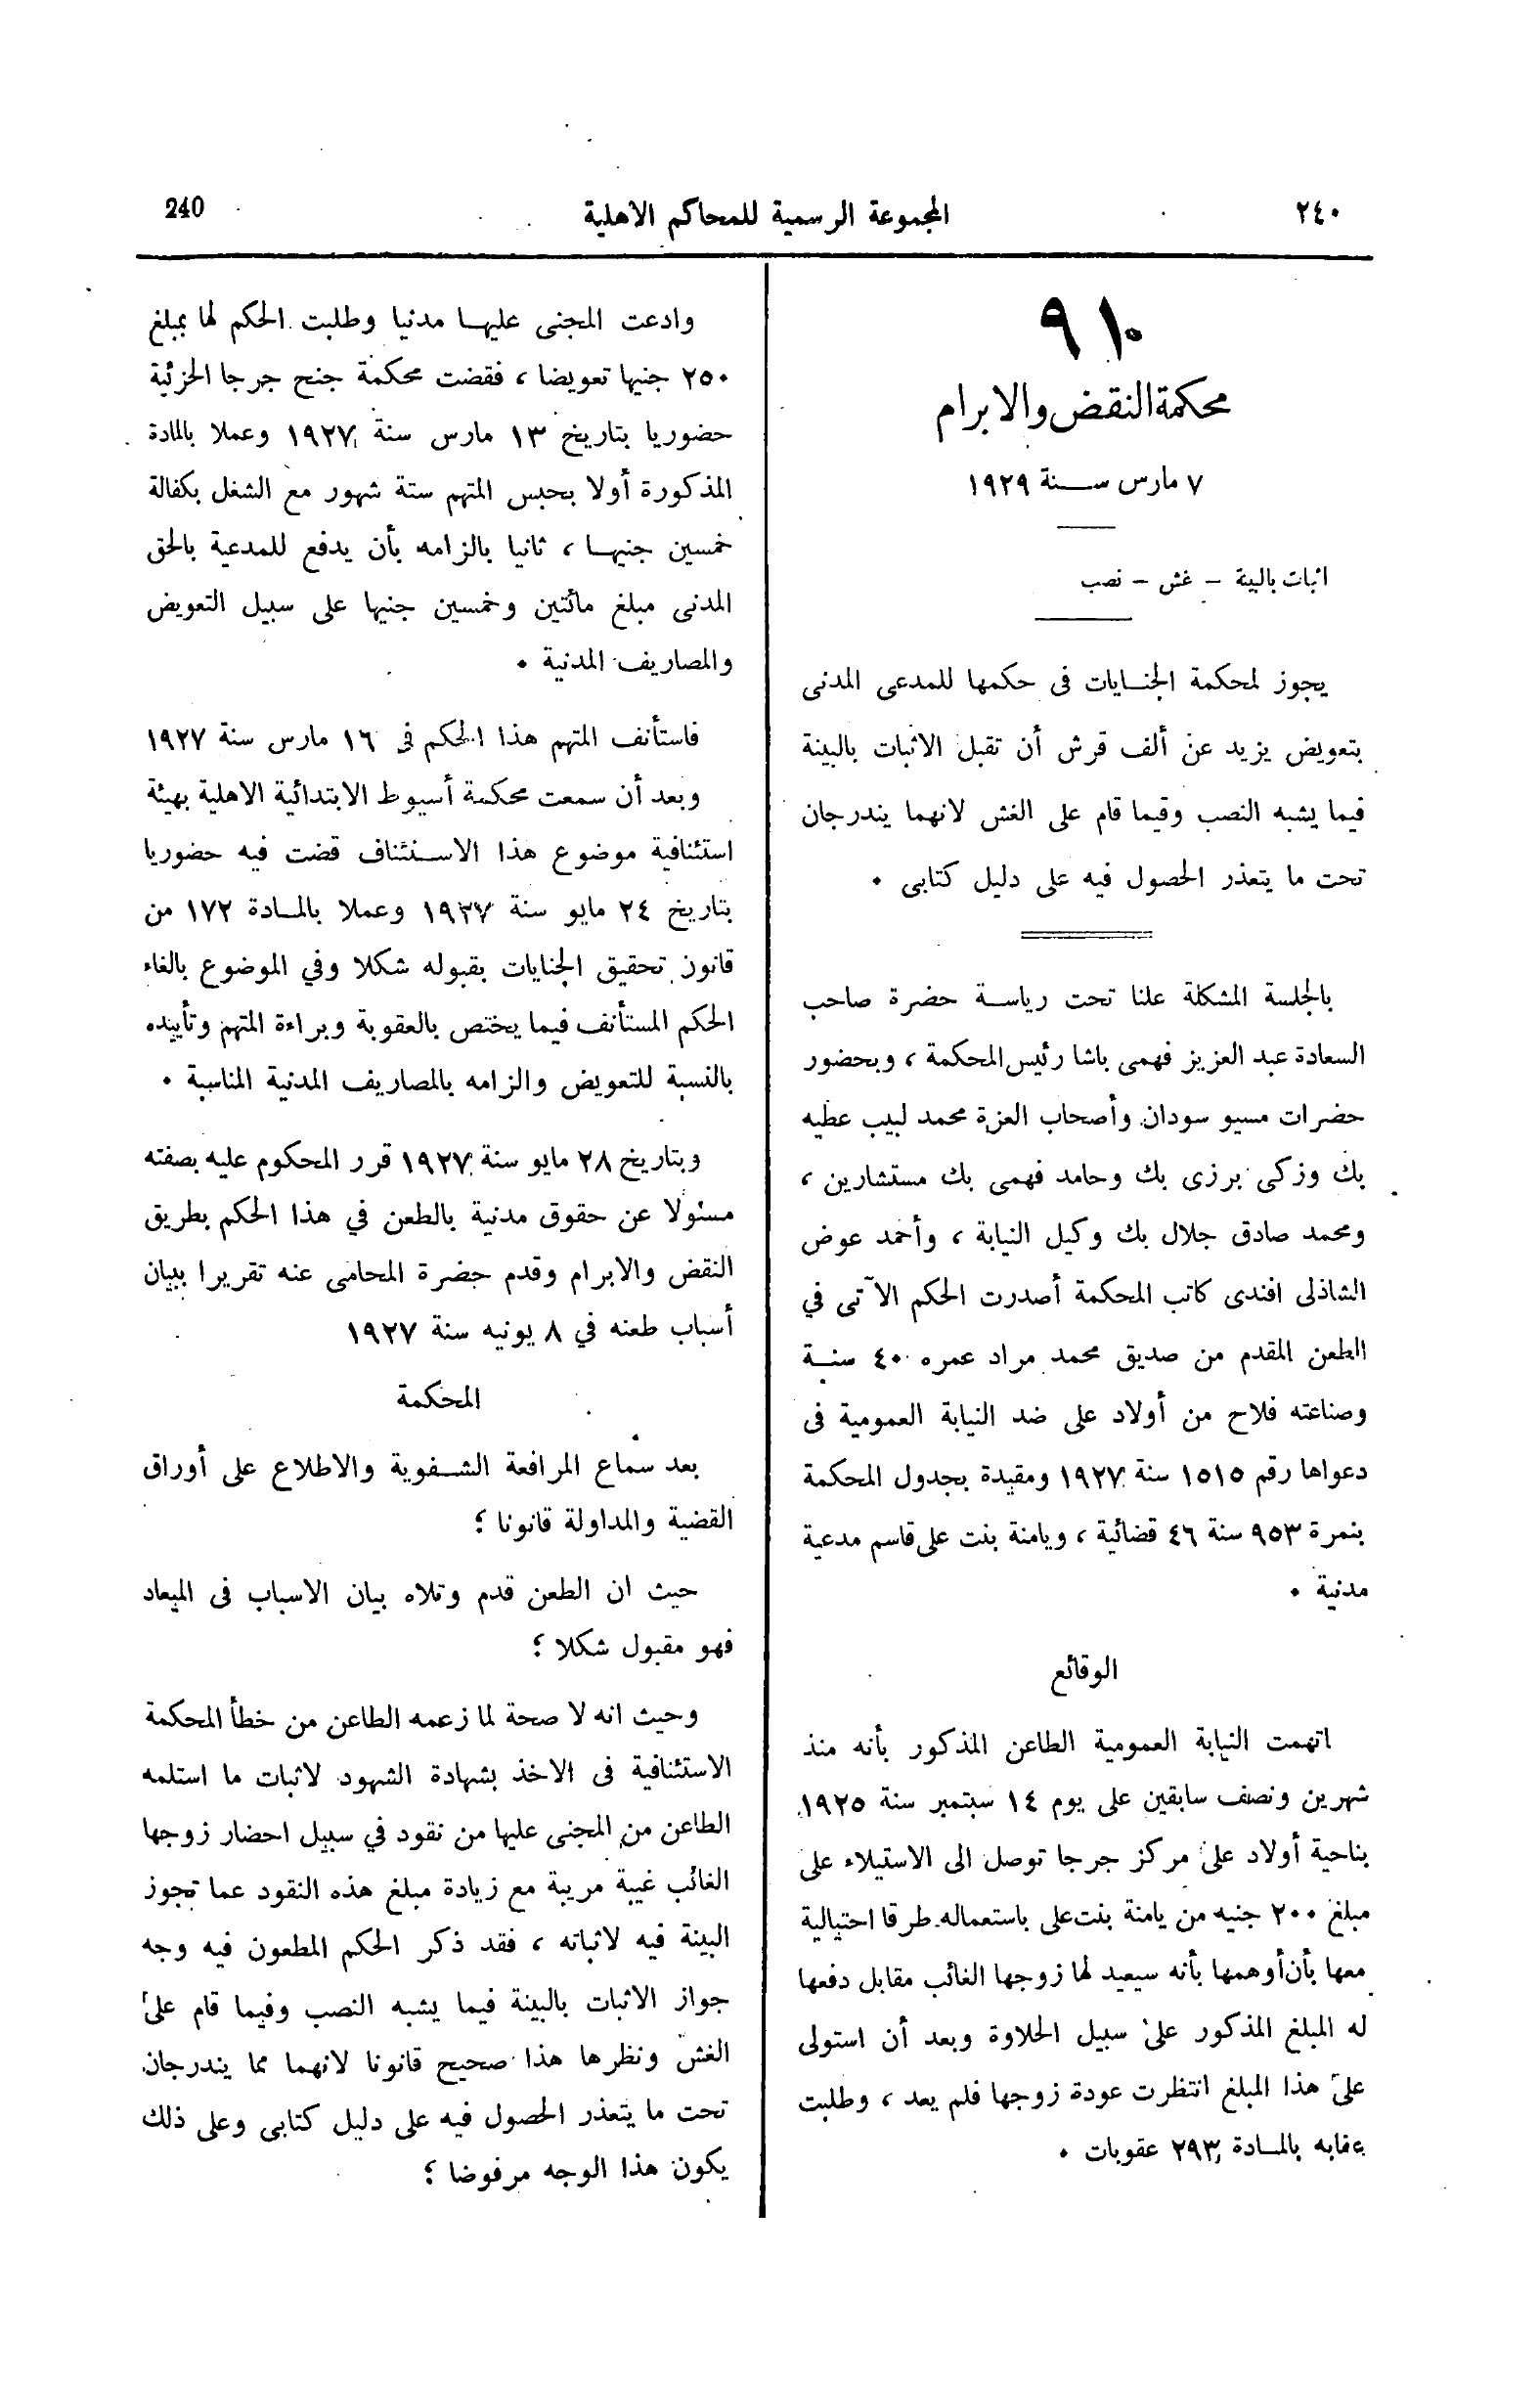 ٢٤٠
المجموعة الرسمية للمحاكم الاهلية
240
٩١٠
محكمة النقض والابرام
٧ مارس سنة ١٩٢٩
اثبات بالبينة - غش - نصب
يجوز لمحكمة الجنايات فى حكمها للمدعى المدنى
بتعويض يزيد عن ألف قرش أن تقبل الاثبات بالبينة
فيما يشبه النصب وفيما قام على الغش لانهما يندرجان
تحت ما يتعذر الحصول فيه على دليل كتابى ٠
بالجلسة المشكلة علنا تحت رياسة حضرة صاحب
السعادة عبد العزيز فهمى باشا رئيس المحكمة ، وبحضور
حضرات مسيو سودان وأصحاب العزة محمد لبيب عطيه
بك وزكى برزى بك وحامد فهمى بك مستشارين ،
ومحمد صادق جلال بك وكيل النيابة ، وأحمد عوض
الشاذلى افندى كاتب المحكمة أصدرت الحكم الآتى في
الطعن المقدم من صديق محمد مراد عمره ٤٠ سنة
وصناعته فلاح من أولاد على ضد النيابة العمومية فى
دعواها رقم ١٥١٥ سنة ١٩٢٧ ومقيدة بجدول المحكمة
بنمرة ٩٥٣ سنة ٤٦ قضائية ، ويامنة بنت على قاسم مدعية
مدنية ٠
الوقائع
اتهمت النيابة العمومية الطاعن المذكور بأنه منذ
شهرين ونصف سابقين على يوم ١٤ سبتمبر سنة ١٩٢٥
بناحية أولاد على مركز جرجا توصل الى الاستيلاء على
مبلغ ٢٠٠ جنيه من يامنة بنت على باستعماله طرقا احتيالية
معها بأن أوهمها بأنه سيعيد لها زوجها الغائب مقابل دفعها
له المبلغ المذكور على سبيل الحلاوة وبعد أن استولى
على هذا المبلغ انتظرت عودة زوجها فلم يعد ، وطلبت
عقابه بالمادة ٢٩٣ عقوبات ٠
وادعت المجنى عليها مدنيا وطلبت الحكم لها بمبلغ
٢٥٠ جنيها تعويضا ، فقضت محكمة جنح جرجا الجزئية
حضوريا بتاريخ ١٣ مارس سنة ١٩٢٧ وعملا بالمادة
المذكورة أولا بحبس المتهم ستة شهور مع الشغل بكفالة
خمسين جنيها ، ثانيا بالزامه بأن يدفع للمدعية بالحق
المدنى مبلغ مائتين وخمسين جنيها على سبيل التعويض
والمصاريف المدنية ٠
فاستأنف المتهم هذا الحكم فى ١٦ مارس سنة ١٩٢٧
وبعد أن سمعت محكمة أسيوط الابتدائية الاهلية بهيئة
استئنافية موضوع هذا الاستئناف قضت فيه حضوريا
بتاريخ ٢٤ مايو سنة ١٩٢٧ وعملا بالمادة ١٧٢ من
قانون تحقيق الجنايات بقبوله شكلا وفي الموضوع بالغاء
الحكم المستأنف فيما يختص بالعقوبة وبراءة المتهم وتأييده
بالنسبة للتعويض والزامه بالمصاريف المدنية المناسبة ٠
وبتاريخ ٢٨ مايو سنة ١٩٢٧ قرر المحكوم عليه بصفته
مسئولا عن حقوق مدنية بالطعن في هذا الحكم بطريق
النقض والابرام وقدم حضرة المحامى عنه تقريرا ببيان
أسباب طعنه في ٨ يونيه سنة ١٩٢٧
المحكمة
بعد سماع المرافعة الشفوية والاطلاع على أوراق
القضية والمداولة قانونا ؛
حيث ان الطعن قدم وتلاه بيان الاسباب فى الميعاد
فهو مقبول شكلا ؛
وحيث انه لا صحة لما زعمه الطاعن من خطأ المحكمة
الاستئنافية فى الاخذ بشهادة الشهود لاثبات ما استلمه
الطاعن من المجنى عليها من نقود في سبيل احضار زوجها
الغائب غيبة مريبة مع زيادة مبلغ هذه النقود عما تجوز
البينة فيه لاثباته ، فقد ذكر الحكم المطعون فيه وجه
جواز الاثبات بالبينة فيما يشبه النصب وفيما قام على
الغش ونظرها هذا صحيح قانونا لانهما مما يندرجان
تحت ما يتعذر الحصول فيه على دليل كتابى وعلى ذلك
يكون هذا الوجه مرفوضا ؛